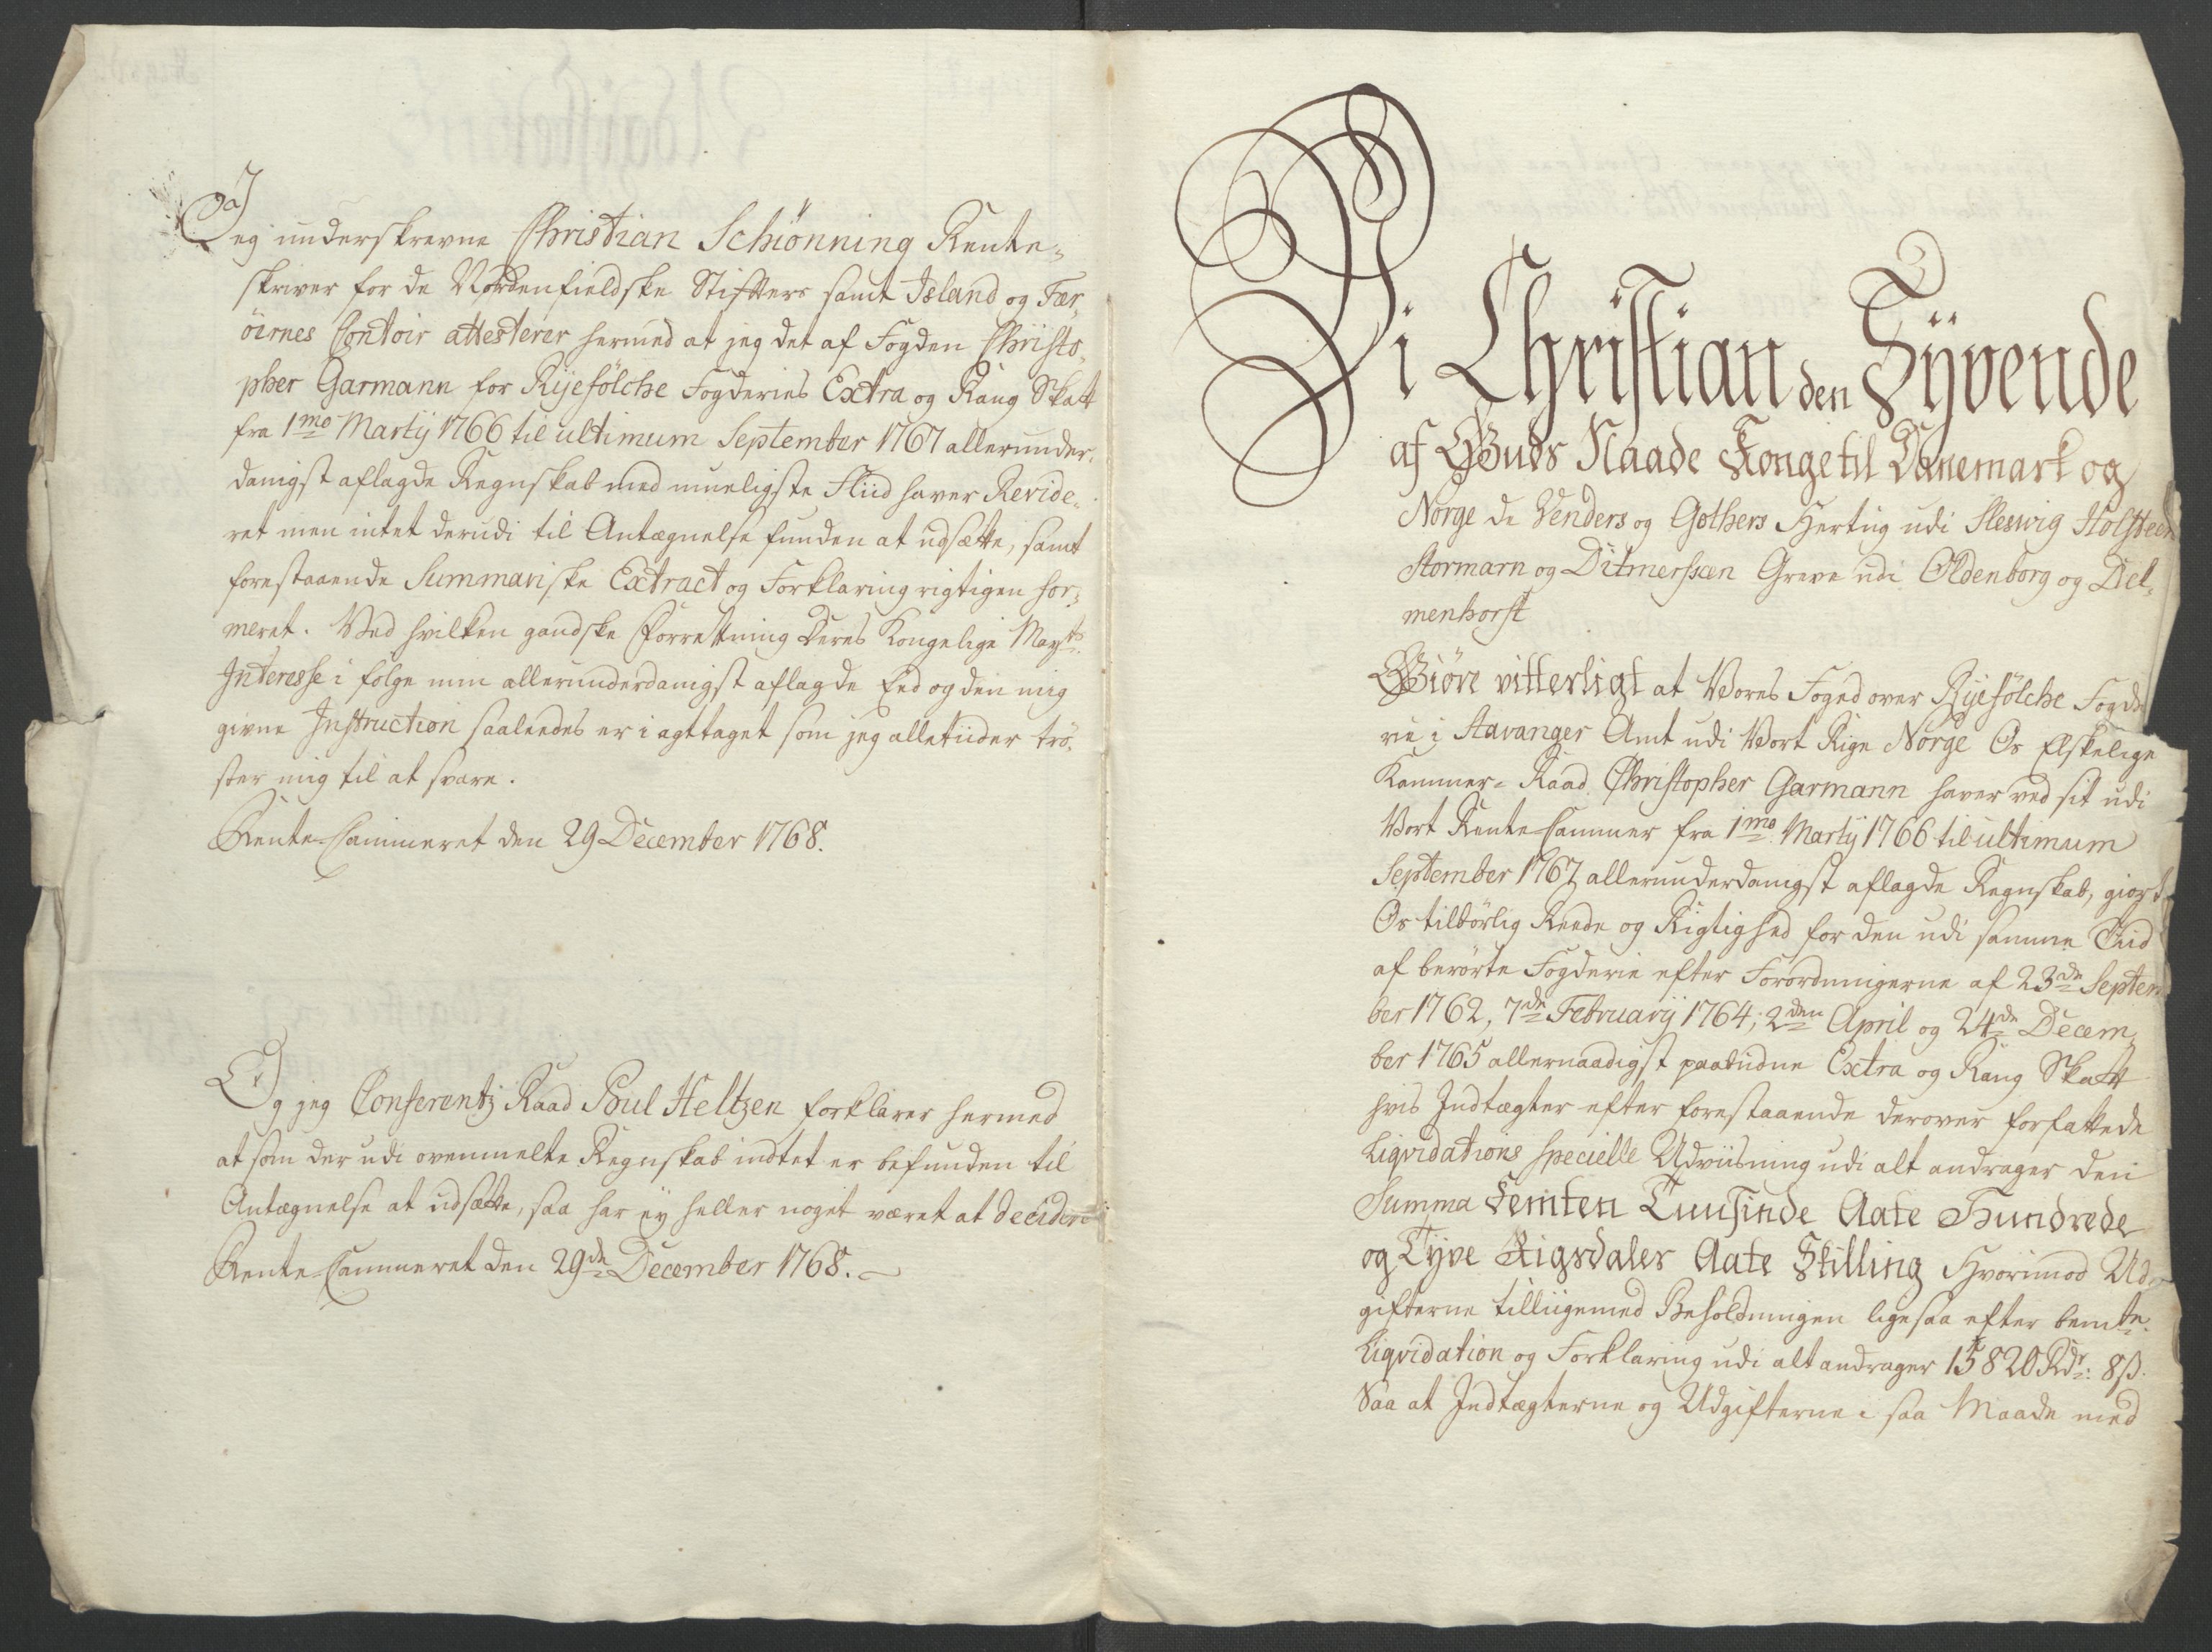 Jeg underskrevne Christian Schiönning Rente-
skriver for de Nordenfieldske Stifters samt Island og Fær-
öernes Contoir attesterer hermed at jeg det af Fogden Christo-
pher Garmann for Ryefölche Fogderies Extra og Rang Skatt
fra 1mo Martij 1766 til ultimum September 1767 allerunder-
danigst aflagde Regnskab med mueligste Fliid haver Revide-
ret men intet derudi til Antægnelse funden at udsætte, samt
forestaaende Summariske Extract og Forklaring rigtigen for-
meret. Ved hvilken gandske Forrettning Deres Kongelige Mayts
Interesse i fölge min allerunderdanigst aflagde Eed og den mig
givne Instruction saaleedes er i agttaget som jeg alletiider trö-
ster mig til at svare.
Rente-Cammeret den 29 December 1768.
Og jeg Conferentz Raad Poul Heltzen forklarer hermed
at som der udi ovenmelte Regnskab indtet er befunden til
Antægnelse at udsætte, saa har ey heller noget været at decidere
Rente-Cammeret den 29de December 1768.
Vi Christian den Syvende
af Guds Naade Konge til Danemark og
Norge de Venders og Gothers Hertug udi Sleswig Holsteen
Stormarn og Ditmersken Greve udi Oldenborg og Del-
menhorst
Giöre vitterligt at Vores Foged over Ryefölche Fogde
rie i Stavanger Amt udi Vort Rige Norge Os Elskelige
Kammer-Raad Christopher Garmann haver ved sit udi
Vort Rente-Cammer fra 1mo Martij 1766 til ultimum
September 1767 allerunderdanigst aflagde Regnskab, giort
Os tilbörlig Reede og Rigtighed for den udi samme Tiid
af berörte Fogderie efter Forordningerne af 23de Septem
ber 1762, 7de Februarij 1764, 2den April og 24de Decem-
ber 1765 allernaadigst paabudne Extra og Rang Skatt
hvis Indtægter efter forestaaende derover forfattede
Liqvidations specielle Udviisning udi alt andrager den
Summa Femten Tuusinde Aate Hundrede
og Tyve Rigsdaler Aate Skilling Hvorimod Ud-
gifterne tilliigemed Beholdningen ligesaa efter bemte
Liqvidation og Forklaring udi alt andrager 15820 Rdr: 8 ß.
Saa at Indtægterne og Udgifterne i saa Maade med